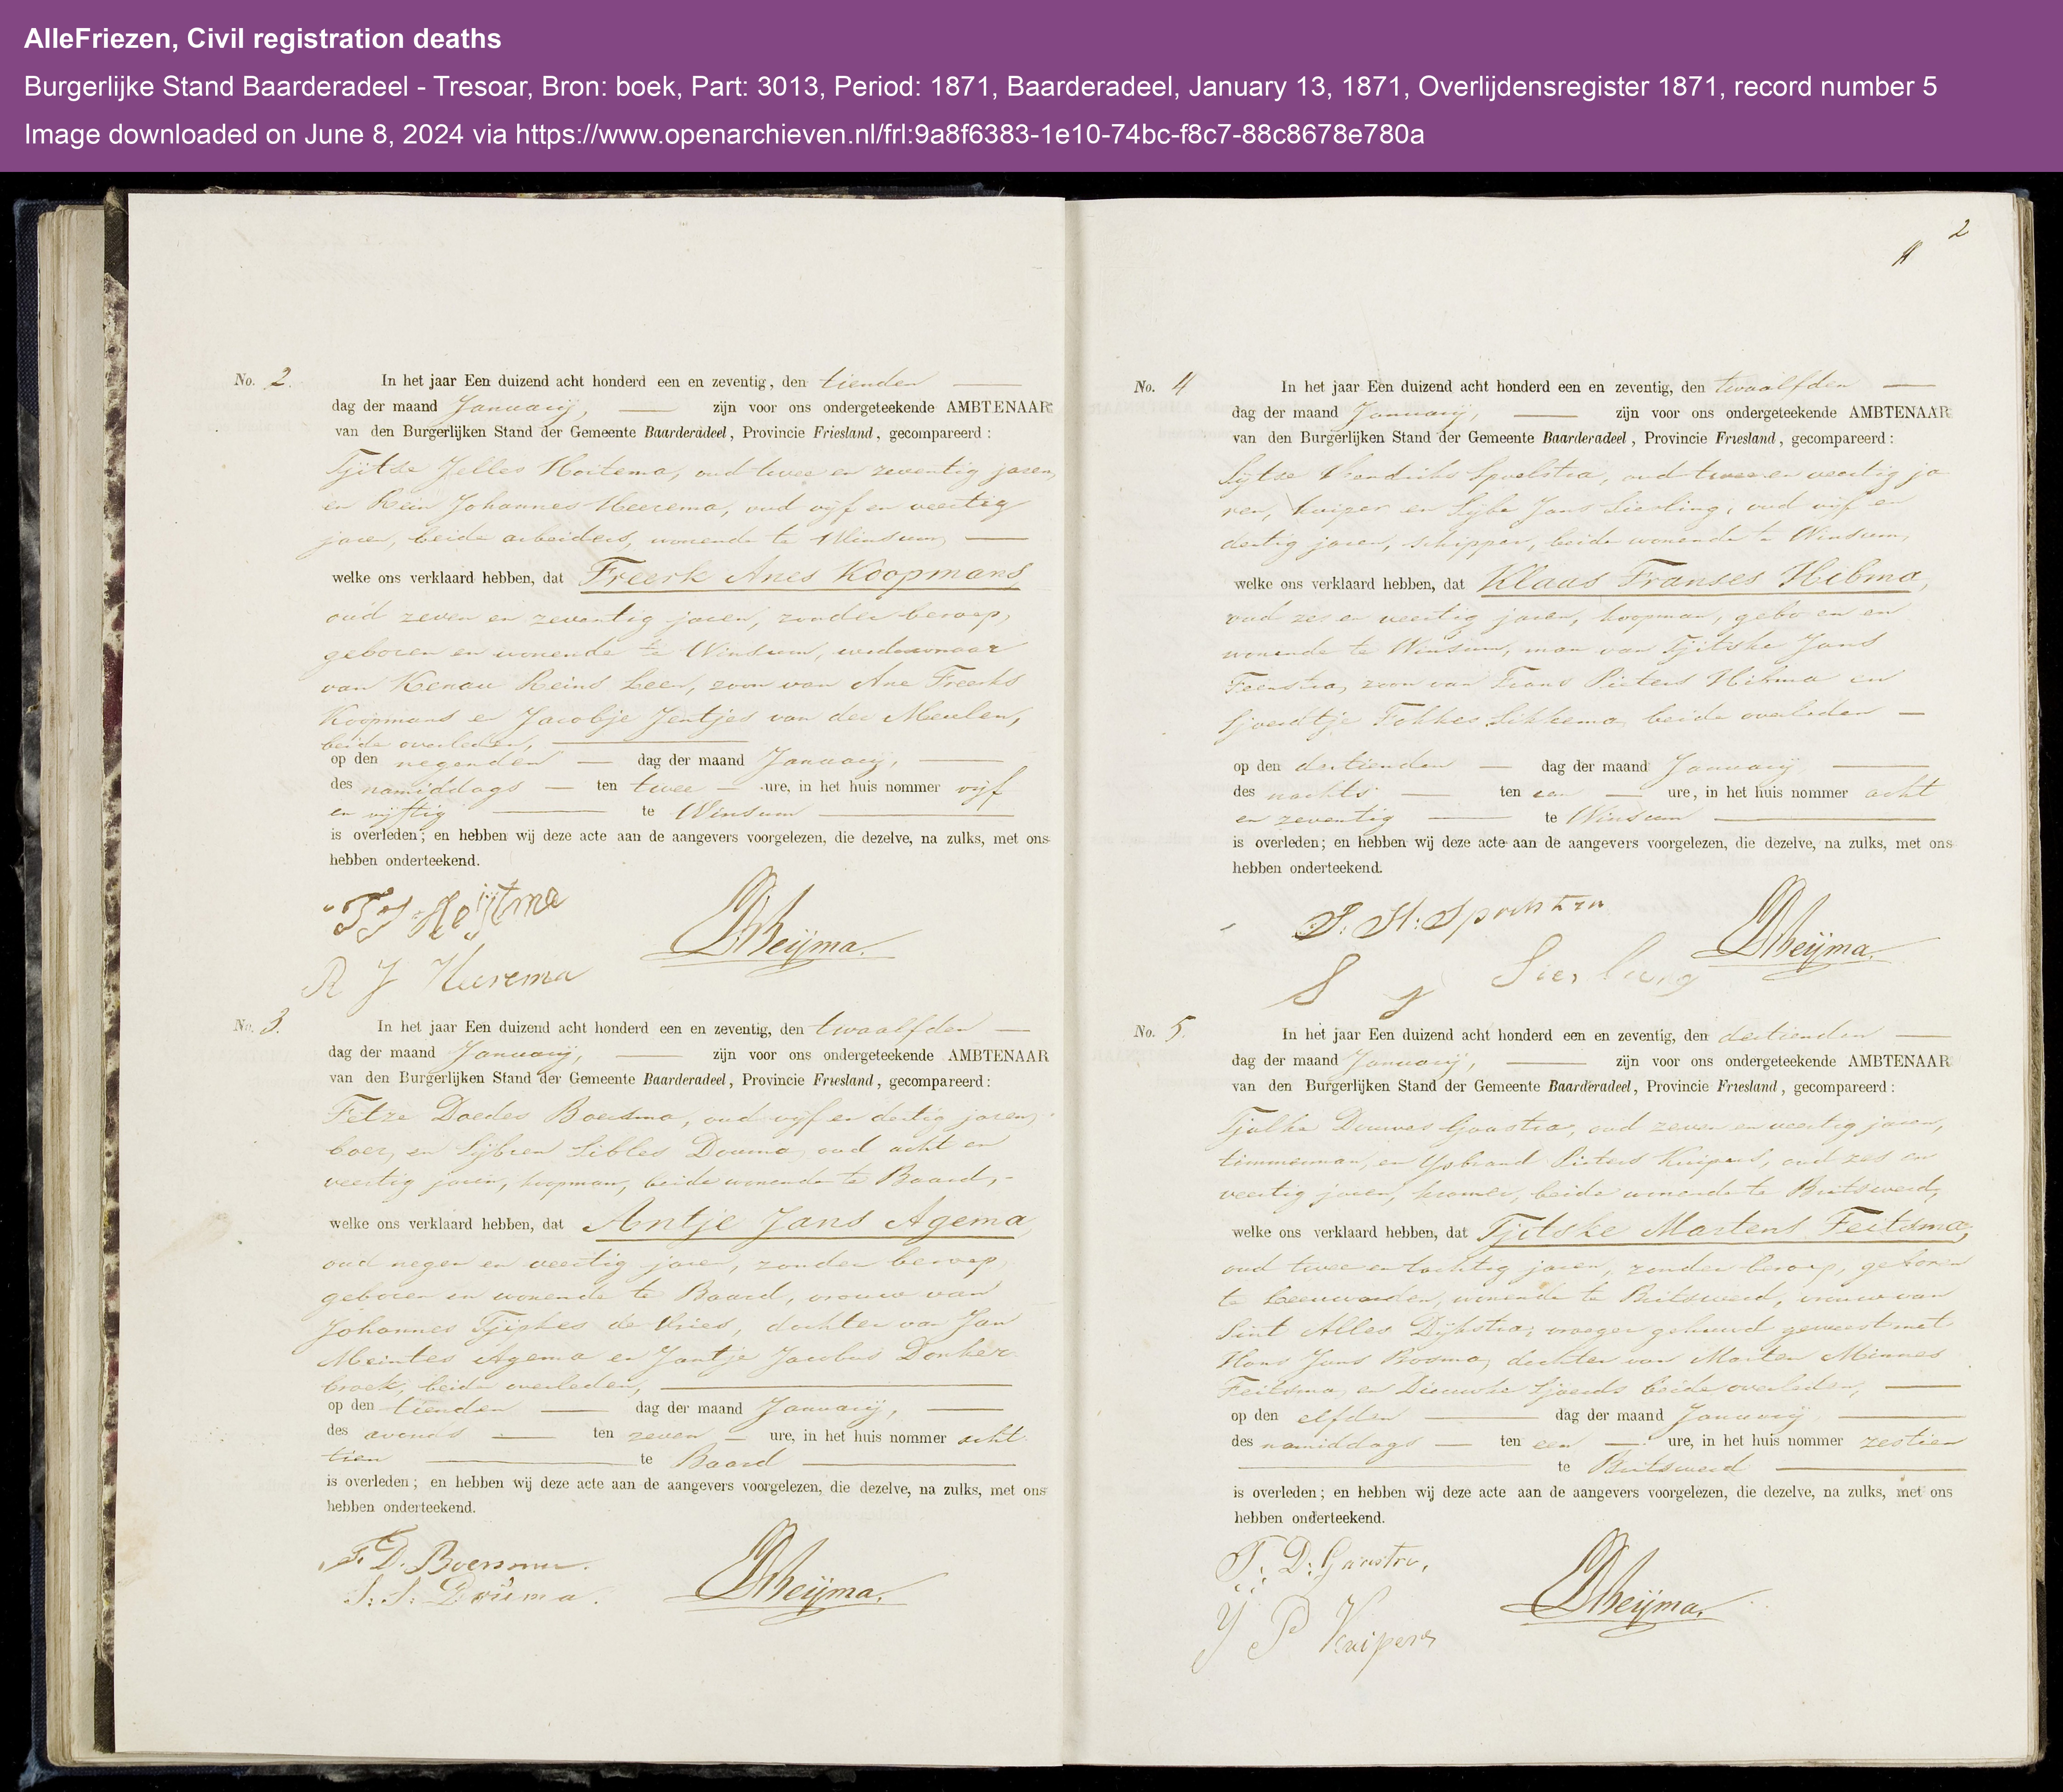 AlleFriezen, Civil registration deaths
Burgerlijke Stand Baarderadeel - Tresoar, Bron: boek, Part: 3013, Period: 1871, Baarderadeel, January 13, 1871, Overlijdensregister 1871, record number 5
Image downloaded on June 8, 2024 via https://www.openarchieven.nl/frl:9a8f6383-1e10-74bc-f8c7-88c8678e780a
No. 2. In het jaar Een duizend acht honderd een en zeventig, den tienden
dag der maand Januarij, zijn voor ons ondergeteekende AMBTENAAR
van den Burgerlijken Stand der Gemeente Baarderadeel, Provincie Friesland, gecompareerd:
Tjitse Jelles Hoitema, oud twee en zeventig jaren,
en Rein Johannes Heerema, oud vijf en veertig
jaren, beide arbeiders, wonende te Winsum,
welke ons verklaard hebben, dat Freerk Anes Koopmans,
oud zeven en zeventig jaren, zonder beroep,
geboren en wonende te Winsum, weduwnaar
van Kenau Reins Leer, zoon van Ane Freerks
Koopmans en Jacobje Jentjes van der Meulen,
beide overleden,
op den negenden dag der maand Januarij,
des namiddags ten twee ure, in het huis nommer vijf
en vijftig te Winsum
is overleden; en hebben wij deze acte aan de aangevers voorgelezen, die dezelve, na zulks, met ons
hebben onderteekend.
TJ Hoijtma
R J Heerema
No. 3. In het jaar Een duizend acht honderd een en zeventig, den twaalfden
dag der maand Januarij, zijn voor ons ondergeteekende AMBTENAAR
van den Burgerlijken Stand der Gemeente Baarderadeel, Provincie Friesland, gecompareerd:
Fetze Doedes Boersma, oud vijf en dertig jaren,
boer, en Sijbren Sibles Douma, oud acht en
veertig jaren, koopman, beide wonende te Baard,
welke ons verklaard hebben, dat Antje Jans Agema,
oud negen en veertig jaren, zonder beroep,
geboren en wonende te Baard, vrouw van
Johannes Tjipkes de Vries, dochter van Jan
Meintes Agema en Jantje Jacobus Donker
broek, beide overleden,
op den tienden dag der maand Januarij,
des avonds ten zeven ure, in het huis nommer acht
tien te Baard
is overleden; en hebben wij deze acte aan de aangevers voorgelezen, die dezelve, na zulks, met ons
hebben onderteekend.
F. D. Boersma.
S. S. Douma.
2
No. 4 In het jaar Een duizend acht honderd een en zeventig, den twaalfden
dag der maand Januarij, zijn voor ons ondergeteekende AMBTENAAR
van den Burgerlijken Stand der Gemeente Baarderadeel, Provincie Friesland, gecompareerd:
Sijtse Hendriks Spoelstra, oud twee en veertig ja
ren, kuiper en Sijbe Jans Sierling, oud vijf en
dertig jaren, schipper, beide wonende te Winsum,
welke ons verklaard hebben, dat Klaas Franses Hibma,
oud zes en veertig jaren, koopman, geboren en
wonende te Winsum, man van Tjitske Jans
Feenstra, zoon van Frans Pieters Hibma en
Sjoerdtje Fokkes Sikkema, beide overleden
op den dertienden dag der maand Januarij
des nachts ten een ure, in het huis nommer acht
en zeventig te Winsum
is overleden; en hebben wij deze acte aan de aangevers voorgelezen, die dezelve, na zulks, met ons
hebben onderteekend.
S. H. Spoelstra
S J Sierling
No. 5. In het jaar Een duizend acht honderd een en zeventig, den dertienden
dag der maand Januarij, zijn voor ons ondergeteekende AMBTENAAR
van den Burgerlijken Stand der Gemeente Baarderadeel, Provincie Friesland, gecompareerd:
Tjalke Douwes Gaastra, oud zeven en veertig jaren,
timmerman, en Ysbrand Pieters Kuipers, oud zes en
veertig jaren, kramer, beide wonende te Britswerd,
welke ons verklaard hebben, dat Tjitske Martens Feitsma,
oud twee en tachtig jaren, zonder beroep, geboren
te Leeuwarden, wonende te Britswerd, vrouw van
Sint Alles Dijkstra, vroeger gehuwd geweest met
Hans Jans Bosma, dochter van Marten Minnes
Feitsma en Dieuwke Sjoerds beide overleden,
op den elfden dag der maand Januarij
des namiddags ten een ure, in het huis nommer zestien
te Britswerd
is overleden; en hebben wij deze acte aan de aangevers voorgelezen, die dezelve, na zulks, met ons
hebben onderteekend.
T. D: Gaastra,
IJ P Kuipers